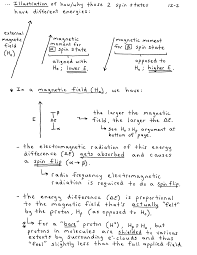 ... Illustration of how/why those 2 spin states 12-2
have different energies:
external
magnetic
field
(H₀)
magnetic
moment for
α spin state
aligned with
H₀; lower E.
magnetic moment
for β spin state
opposed to
H₀; higher E.
In a magnetic field (H₀), we have:
E
β
α
the larger the magnetic
field, the larger the ΔE.
see H₀ > Hₚ argument at
bottom of page.
- the electromagnetic radiation of this energy
difference (ΔE) gets absorbed and causes
a spin flip (α → β).
radio frequency electromagnetic
radiation is required to do a spin flip.
- the energy difference (ΔE) is proportional
to the magnetic field that's actually "felt"
by the proton, Hₚ (as opposed to H₀).
for a "bare" proton (H⁺), H₀ = Hₚ, but
protons in molecules are shielded to various
extents by surrounding e⁻ clouds and thus
"feel" slightly less than the full applied field.